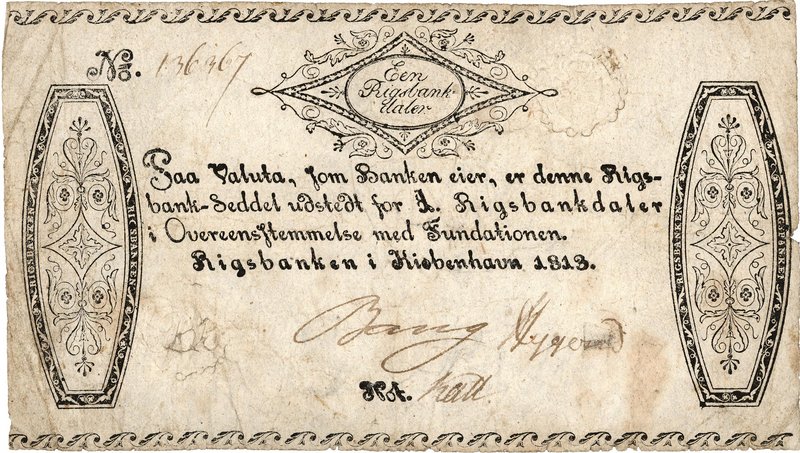 No. 136367
Een
Rigsbank-
daler
Paa Valuta, som Banken eier, er denne Rigs-
bank-Seddel udstedt for 1. Rigsbankdaler
i Overeensstemmelse med Fundationen.
Rigsbanken i Kiøbenhavn 1813.
RIGSBANKEN
RIGSBANKEN
RIGSBANKEN
Bang
Not.